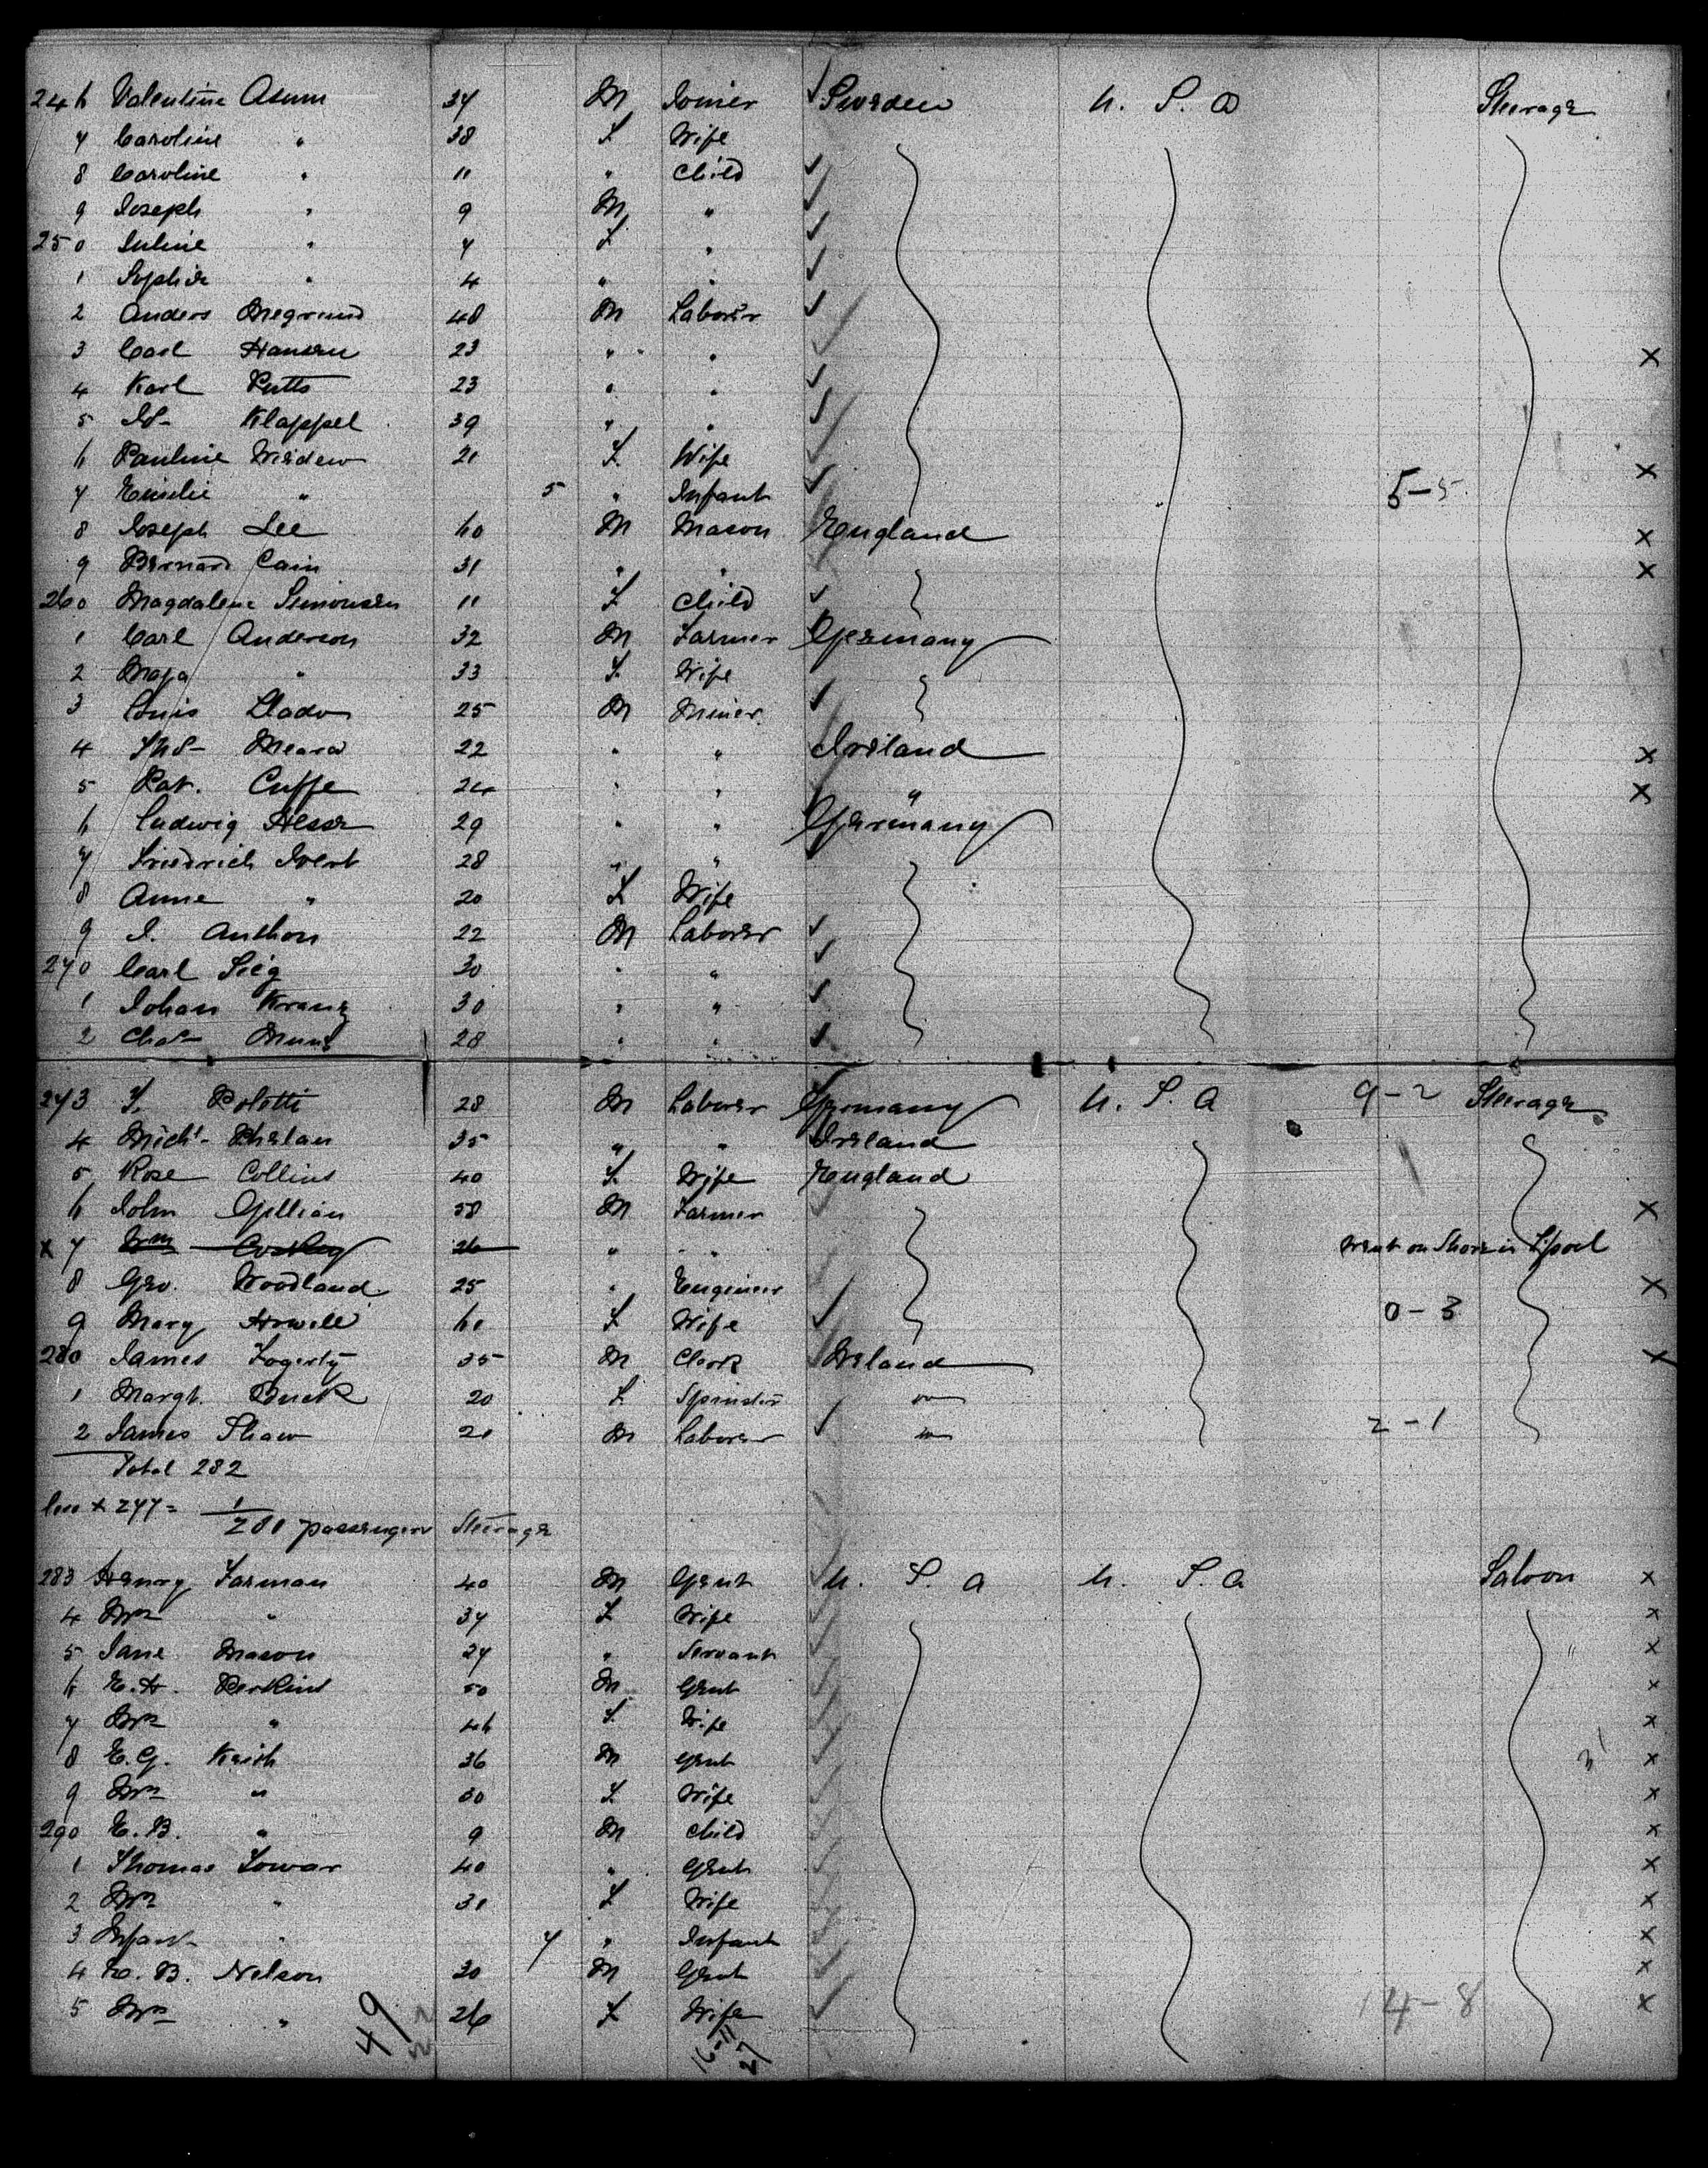 246 Valentine Asum 34 M Joiner Sweden U. S. A Steerage
7 Caroline " 38 F Wife
8 Caroline " 11 " Child
9 Joseph " 9 M "
250 Juline " 7 F "
1 Sophie " 4 " "
2 Anders Megrund 48 M Laborer
3 Carl Hansen 23 " " x
4 Karl Putto 23 " "
5 Jos Klappel 39 " "
6 Pauline Wisdew 21 F. Wife x
7 Emilie " 5 " Infant 5-5
8 Joseph Lee 60 M Mason England x
9 Bernard Cain 31 " " x
260 Magdalene Simonsen 11 F Child
1 Carl Anderson 32 M Farmer Germany
2 Maja " 33 F. Wife
3 Louis Llado 25 M Miner
4 Thos Meara 22 " " Ireland x
5 Pat. Cuffe 24 " " " x
6 Ludwig Hesse 29 " " Germany
7 Friedrich Ivert 28 " "
8 Anne " 20 F Wife
9 J. Anthon 22 M Laborer
270 Carl Sieg 30 " "
1 Johan Kranz 30 " "
2 Chas 28 " "
273 F. Polotti 28 M Laborer Germany U. S. A 9-2 Steerage
4 Michl Phelan 35 " " Ireland
5 Rose Collins 40 F. Wife England
6 John Gillian 58 M Farmer x
x 7 Wm Coskey 26 " " Went on Shore in L'pool
8 Geo. Woodland 25 " Engineer x
9 Mary Howell 61 F Wife 0-3
280 James Fogerty 35 M Clerk Ireland x
1 Margt. Buck 20 F. Spinster "
2 James Shaw 21 M Laborer " 2-1
Total 282
less x 277 = 1
281 passengers Steerage
283 Henry Farman 40 M Gent U. S. A U. S. A Saloon x
4 Mrs " 34 F Wife x
5 Jane Mason 24 " Servant x
6 E. H. Perkins 50 M Gent x
7 Mrs " 46 F. Wife x
8 E. G. Keith 36 M Gent x
9 Mrs " 30 F. Wife x
290 E. B. " 9 M Child x
1 Thomas Lowar 40 " Gent x
2 Mrs " 31 F Wife x
3 Infant " 7 " Infant x
4 E. B. Nelson 30 M Gent x
5 Mrs " 26 F Wife 14-8 x
49
16-11
27